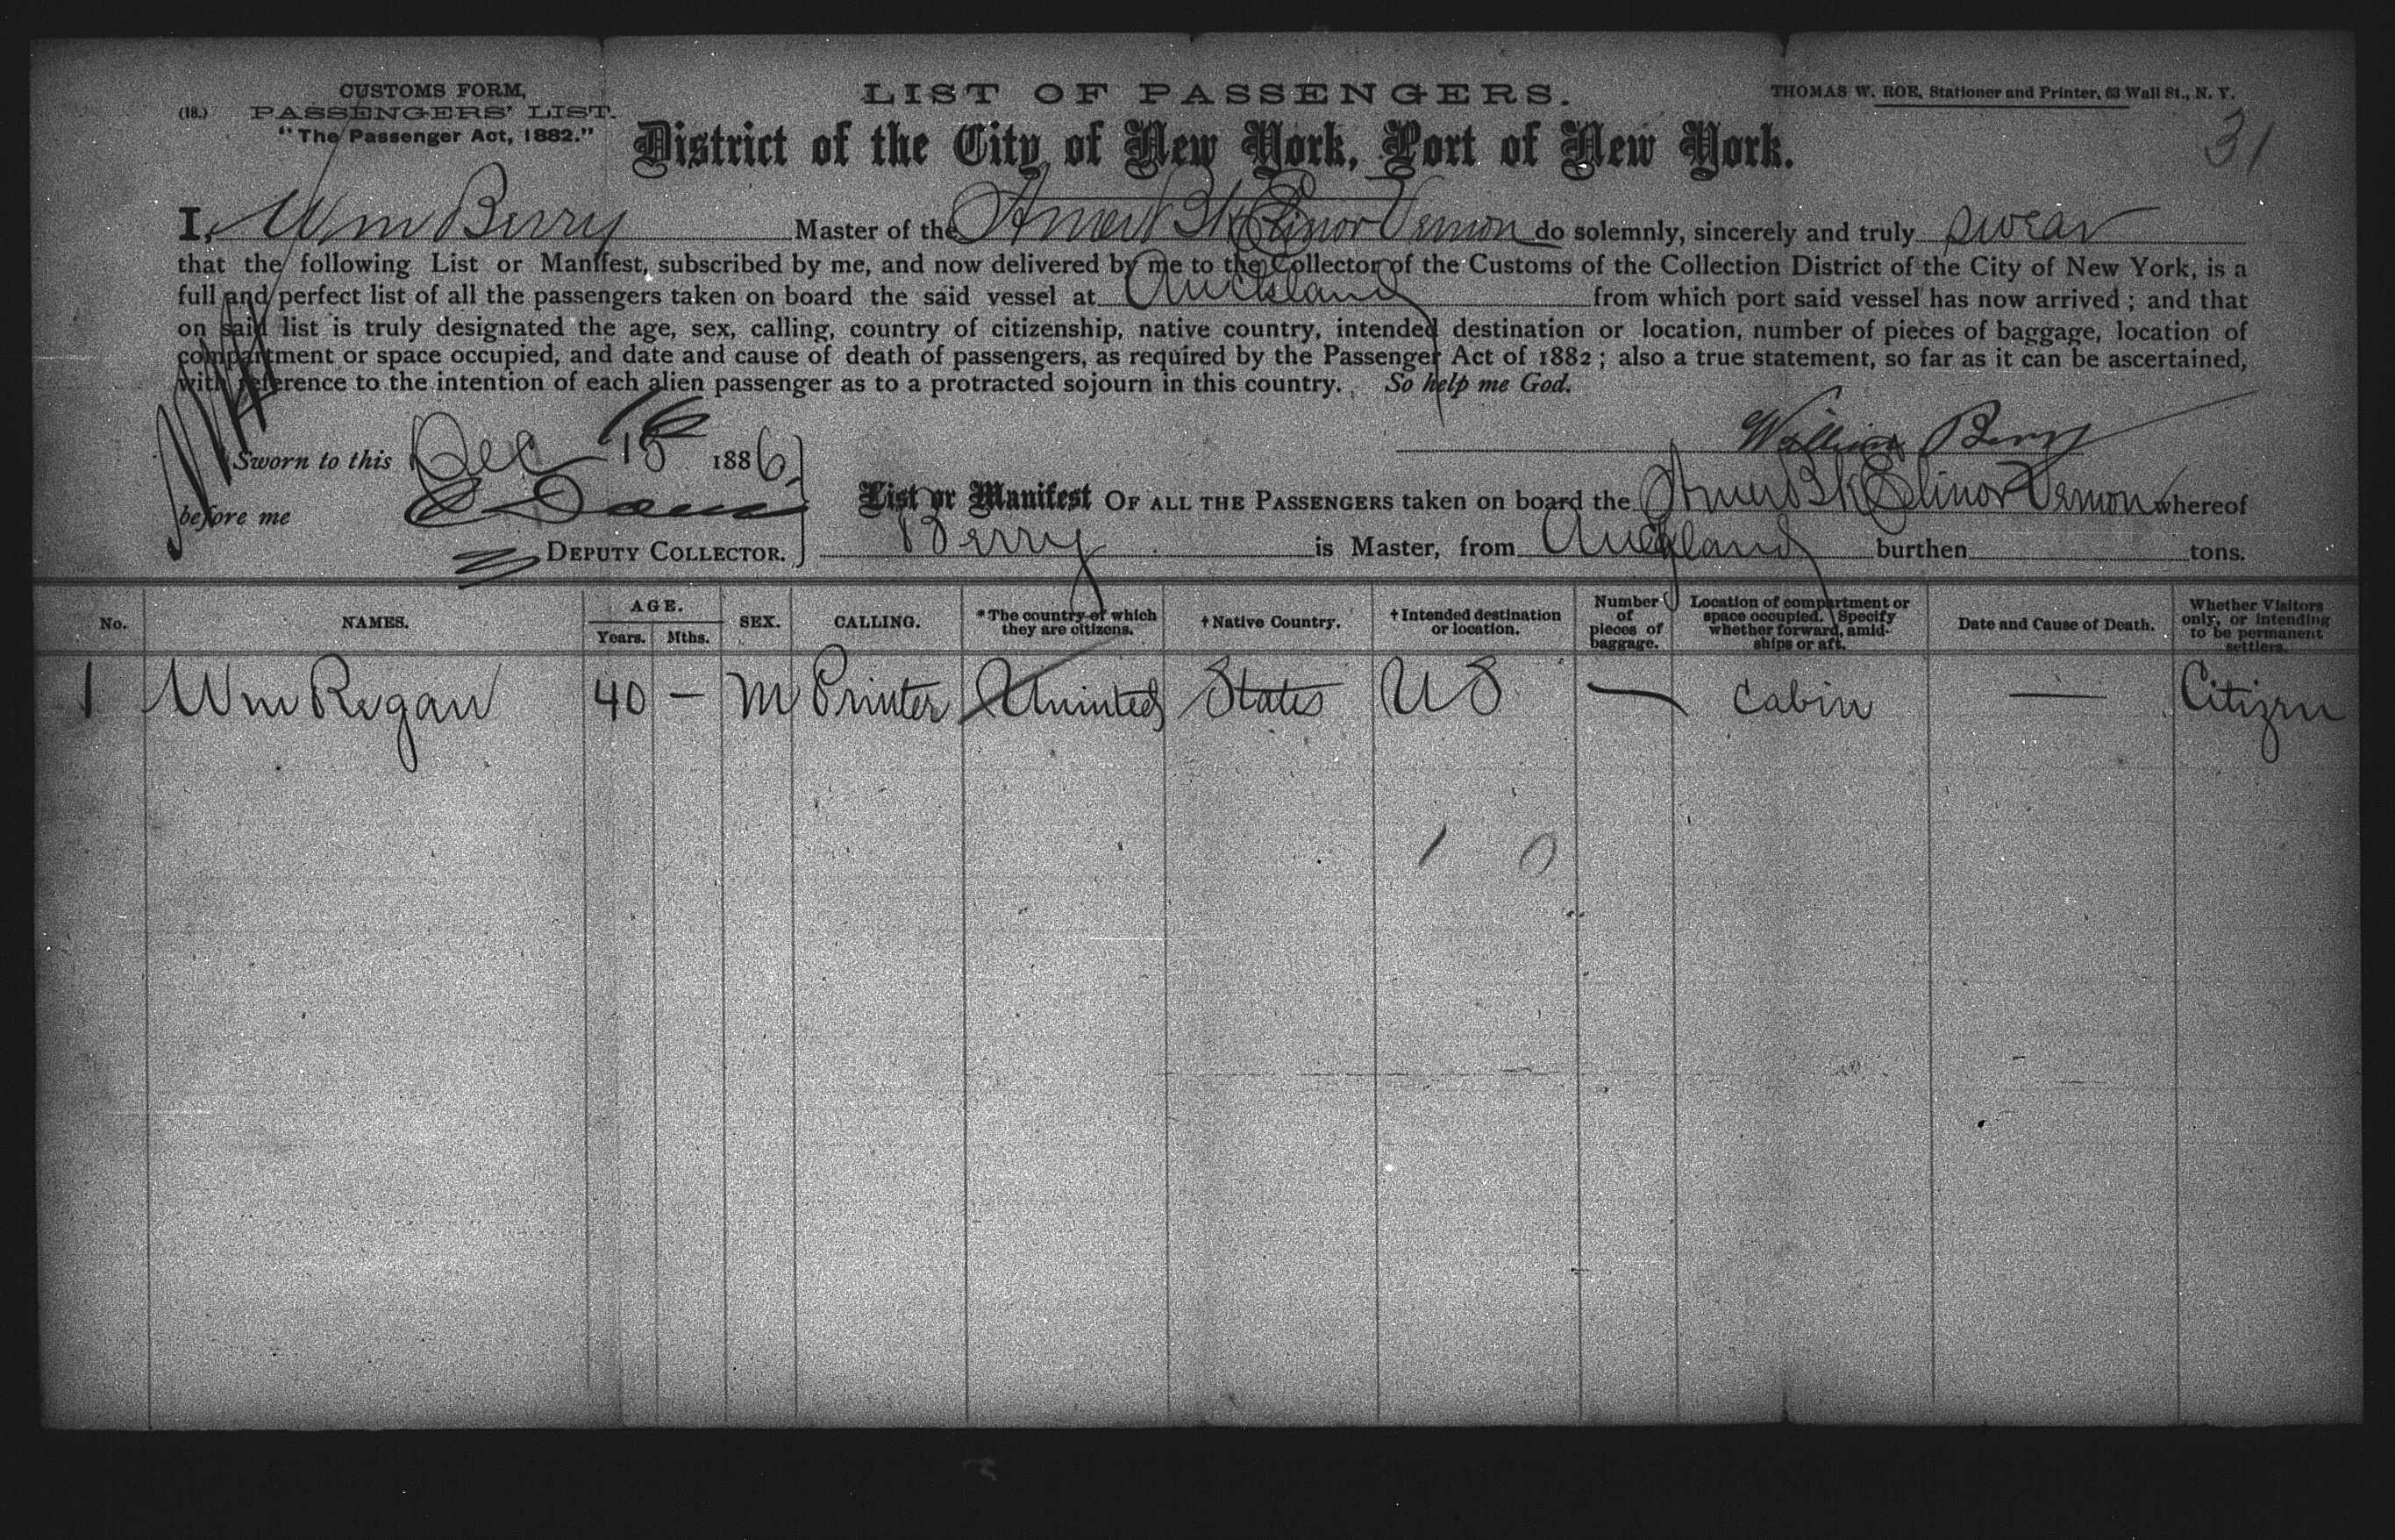 CUSTOMS FORM,
(18.) PASSENGERS' LIST.
"The Passenger Act, 1882."
LIST OF PASSENGERS.
THOMAS W. ROE, Stationer and Printer, 63 Wall St., N. Y.
31
District of the City of New York, Port of New York.
I, Wm Berry Master of the Amer Bk Elinor Vernon do solemnly, sincerely and truly swear
that the following List or Manifest, subscribed by me, and now delivered by me to the Collector of the Customs of the Collection District of the City of New York, is a
full and perfect list of all the passengers taken on board the said vessel at Auckland from which port said vessel has now arrived; and that
on said list is truly designated the age, sex, calling, country of citizenship, native country, intended destination or location, number of pieces of baggage, location of
compartment or space occupied, and date and cause of death of passengers, as required by the Passenger Act of 1882; also a true statement, so far as it can be ascertained,
with reference to the intention of each alien passenger as to a protracted sojourn in this country. So help me God.
William Berry
Sworn to this Dec 16 15 1886
before me
DEPUTY COLLECTOR.
List or Manifest OF ALL THE PASSENGERS taken on board the Amer Bk Elinor Vernon whereof
Berry is Master, from Auckland burthen tons.
No. NAMES. AGE. Years. Mths. SEX. CALLING. *The country of which they are citizens. †Native Country. †Intended destination or location. Number of pieces of baggage. Location of compartment or space occupied. Specify whether forward, amidships or aft. Date and Cause of Death. Whether Visitors only, or intending to be permanent settlers.
1 Wm Regan 40 — M Printer Uninted States U S — Cabin — Citizen
1 0